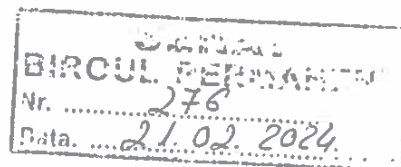 BIROUL PERMANENT
Nr. ......276......
Data. 21.02.2024